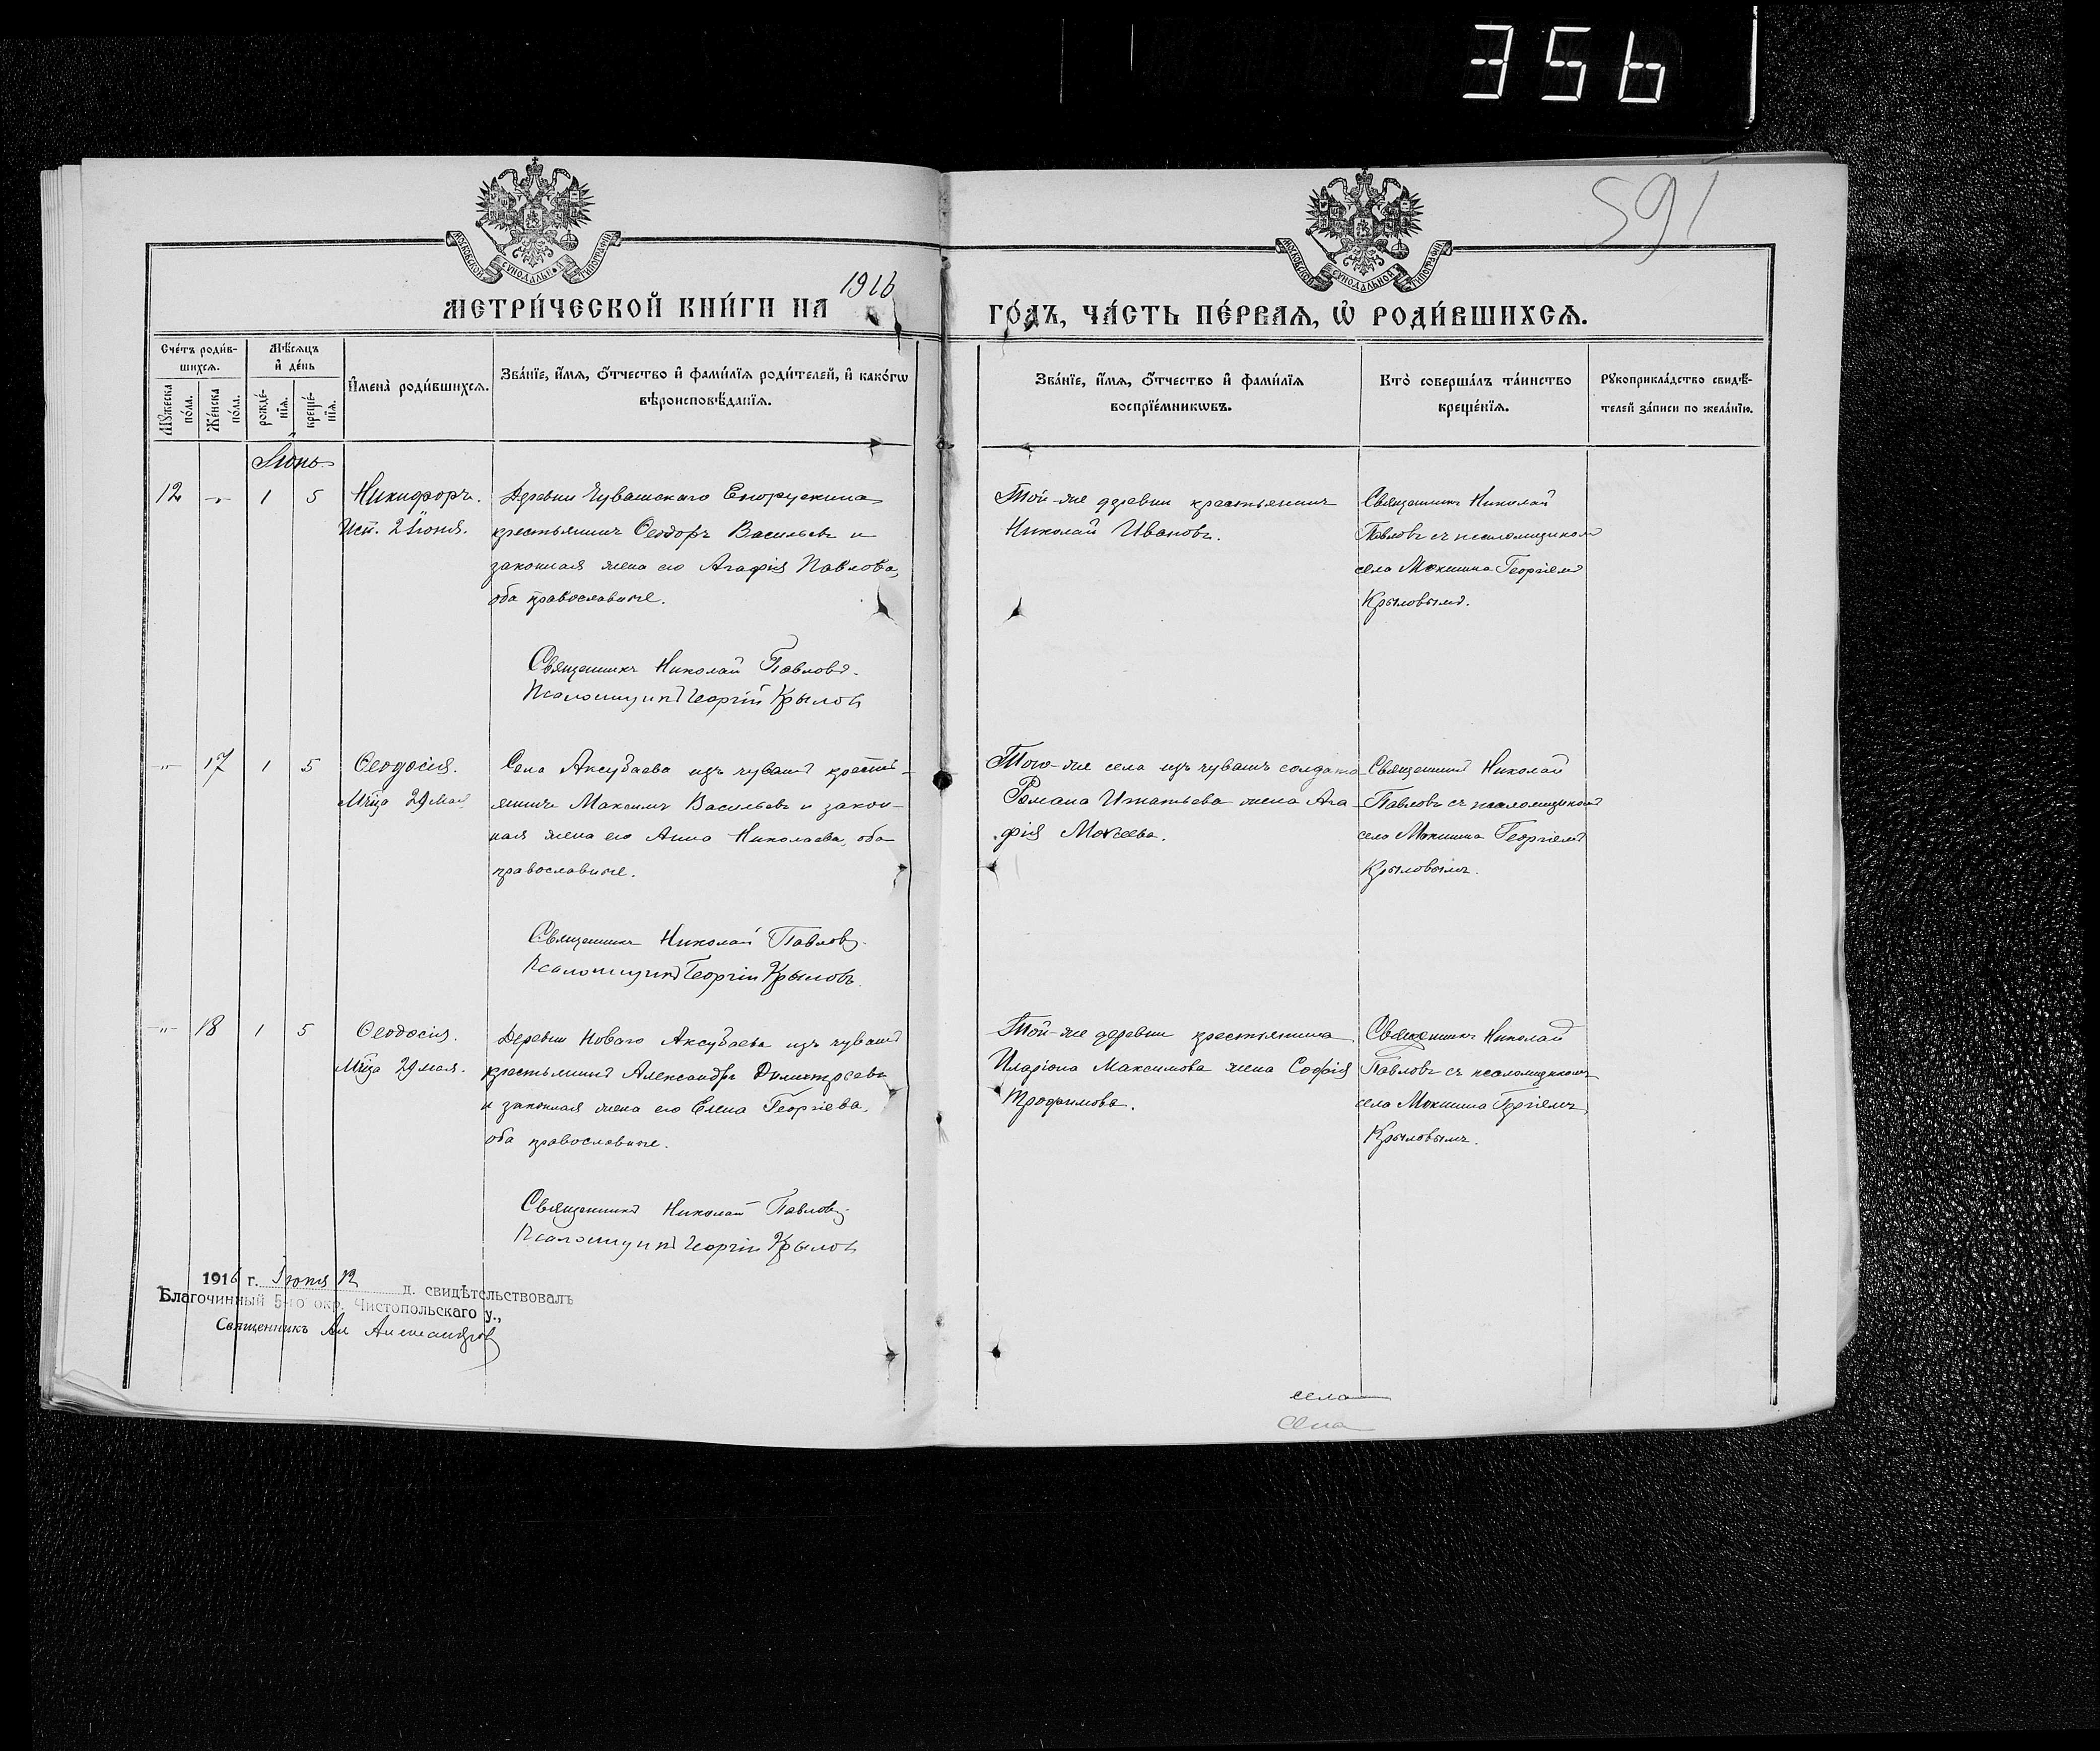 356
591
МОСКОВСКОЙ СѴНОДАЛЬНОЙ ТИПОГРАФІИ
МОСКОВСКОЙ СѴНОДАЛЬНОЙ ТИПОГРАФІИ
МЕТРИ́ЧЕСКОЙ КНИ́ГИ НА 1916 ГО́ДЪ, ЧА́СТЬ ПЕ́РВАѦ, Ѡ҆ РОДИ́ВШИХСѦ.
Сче́тъ роди́в-
шихсѧ.
Мꙋ́жеска по́ла.
Же́нска по́ла.
Мѣ́сѧцъ
и҆ де́нь
рожде́-
нїѧ.
креще́-
нїѧ.
И҆мена̀ роди́вшихсѧ.
Зва́нїе, и҆́мѧ, ѻ҆́тчество и҆ фами́лїѧ роди́телей, и҆ како́гѡ
вѣроисповѣ́данїѧ.
Зва́нїе, и҆́мѧ, ѻ҆́тчество и҆ фами́лїѧ
воспрїе́мникѡвъ.
Кто̀ соверша́лъ та́инство
креще́нїѧ.
Рꙋкоприкла́дство свидѣ́-
телей за́писи по жела́нїю.
Іюнь
12 -"- 1 5
Никифоръ.
Исп. 2 Іюня.
Деревни Чувашскаго Енорускина
крестьянинъ Ѳеодоръ Васильевъ и
законная жена его Агафія Павлова,
оба православные.
Священникъ Николай Павловъ.
Псаломщикъ Георгій Крыловъ
Той-же деревни крестьянинъ
Николай Ивановъ.
Священникъ Николай
Павловъ съ псаломщикомъ
села Мокшина Георгіемъ
Крыловымъ.
-"- 17 1 5
Ѳеодосія.
Мчца 29 мая
Села Аксубаева изъ чувашъ кресть-
янинъ Максимъ Васильевъ и закон-
ная жена его Анна Николаева, оба
православные.
Священникъ Николай Павловъ.
Псаломщикъ Георгій Крыловъ.
Того-же села изъ чувашъ солдата
Романа Игнатьева жена Ага-
фія Мокеева.
Священникъ Николай
Павловъ съ псаломщикомъ
села Мокшина Георгіемъ
Крыловымъ.
-"- 18 1 5
Ѳеодосія.
Мчца 29 мая.
Деревни Новаго Аксубаева изъ чувашъ
крестьянинъ Александръ Димитріевъ
и законная жена его Елена Георгіева,
оба православные.
Священникъ Николай Павловъ.
Псаломщикъ Георгій Крыловъ
Той-же деревни крестьянина
Иларіона Максимова жена Софія
Трофимова.
Священникъ Николай
Павловъ съ псаломщикомъ
села Мокшина Георгіемъ
Крыловымъ.
1916 г. Іюня 12 д. свидѣтельствовалъ
Благочинный 5-го окр. Чистопольскаго у.,
Священникъ Ал Александровъ
села
Села